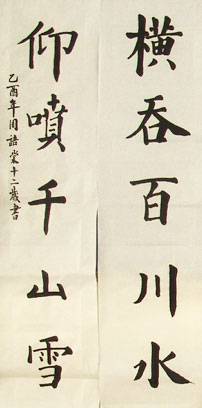 横吞百川水
仰噴千山雪
乙酉年周語棠十二歲書